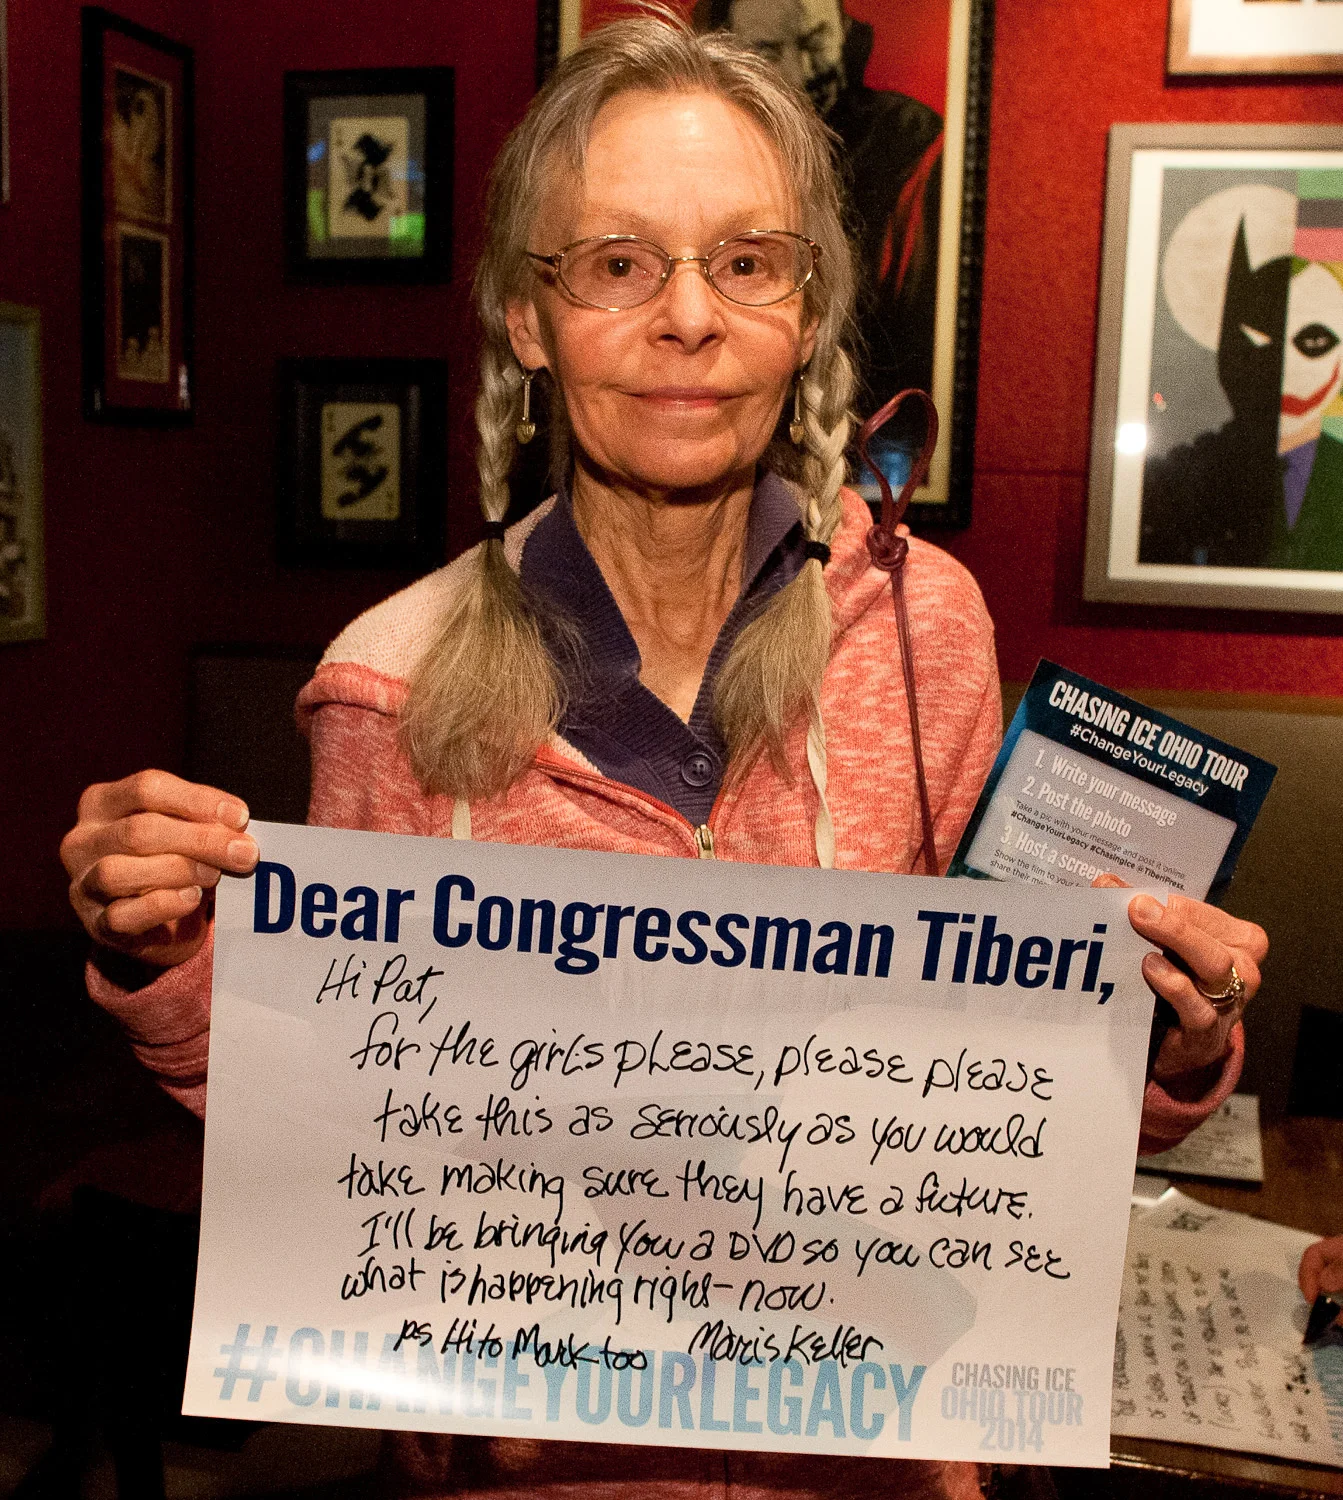 CHASING ICE OHIO TOUR
#ChangeYourLegacy
1. Write your message
2. Post the photo
Take a pic with your message and post it online.
#ChangeYourLegacy #ChasingIce @TiberiPress.
3. Host a screen
Show the film to your
share their me
Dear Congressman Tiberi,
Hi Pat,
for the girls please, please please
take this as seriously as you would
take making sure they have a future.
I'll be bringing you a DVD so you can see
what is happening right-now.
ps Hi to Mark too Maris Keller
#CHANGEYOURLEGACY
CHASING ICE
OHIO TOUR
2014